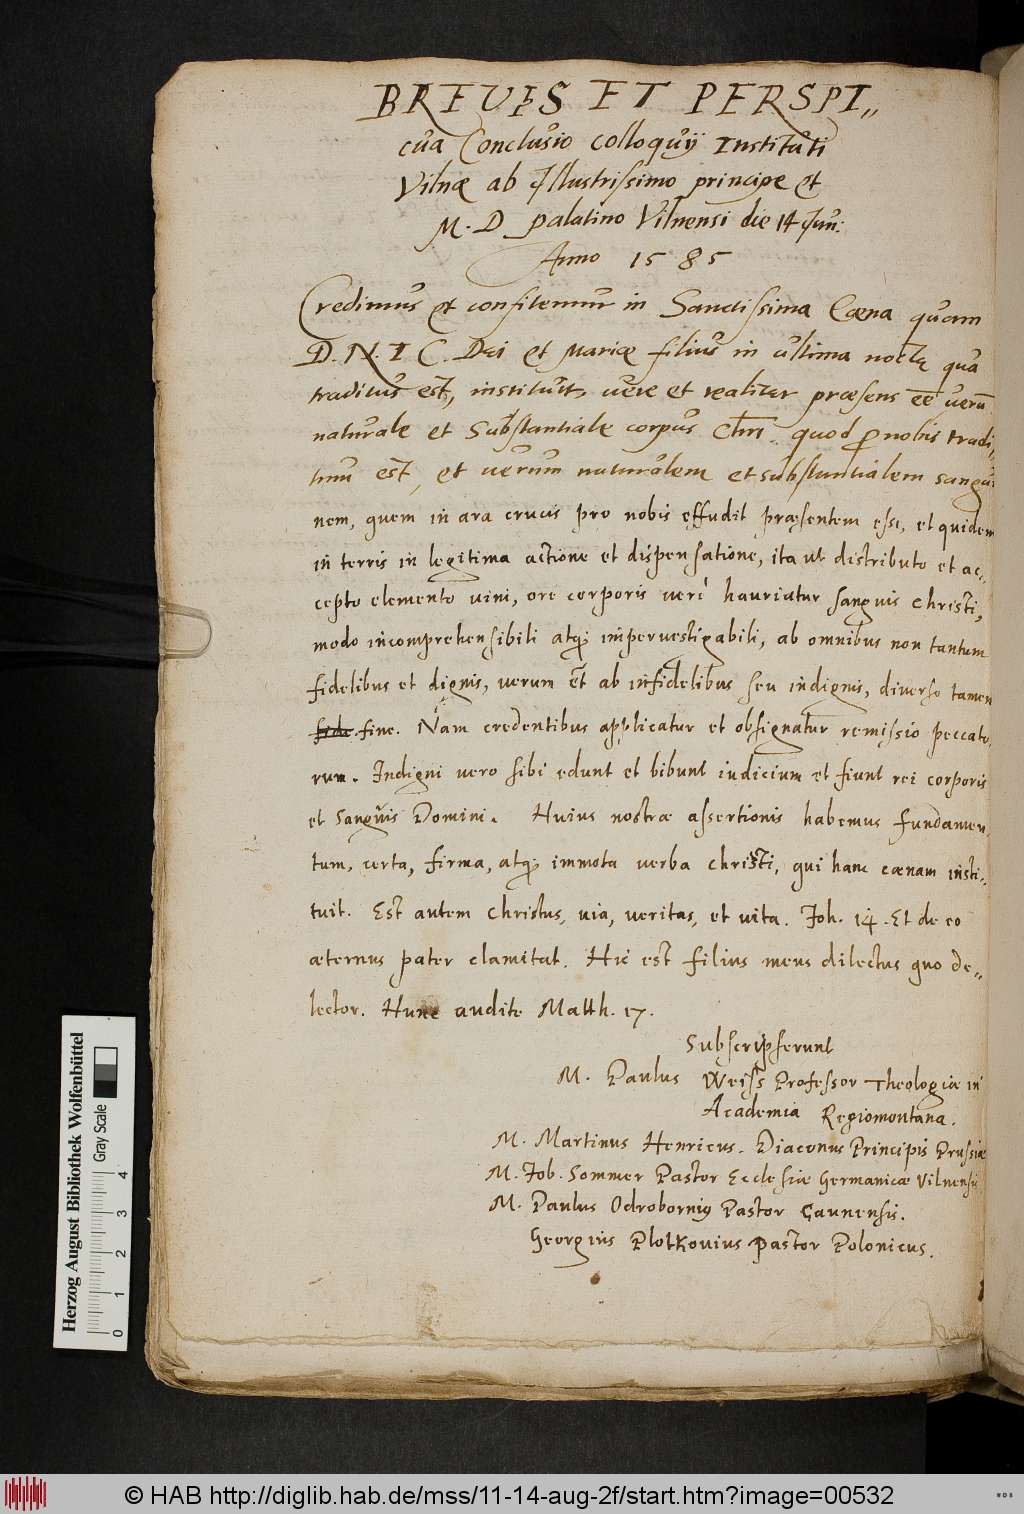 BREVIS ET PERSPI„
cua Conclusio colloquij Instituti
Vilnæ ab Illustrissimo principe et
M. D palatino Vilnensi die 14 Jun:
Anno 1585
Credimus et confitemur in Sanctissima Cæna quam
D. N. I C. Dei et Mariæ filius in ultima nocte qua
traditus est, instituit, vere et realiter præsens eē verū
naturale et Substantiale corpus Chri. quod pro nobis tradi„
tum est, et verum naturalem et substantialem sangui
nem, quem in ara crucis pro nobis effudit præsentem esse, et quidem
in terris in legitima actione et dispensatione, ita ut distributo et ac„
cepto elemento vini, ore corporis veri hauriatur sanguis Christi,
modo incomprehensibili atq; impervestigabili, ab omnibus non tantum
fidelibus et dignis, verum et ab infidelibus seu indignis, diverso tamen
fide fine. Nam credentibus applicatur et obsignatur remissio peccato„
rum. Indigni vero sibi edunt et bibunt iudicium et fiunt rei corporis
et Sanguis Domini. Huius nostræ assertionis habemus fundamen„
tum, certa, firma, atq; immota verba Christi, qui hanc cænam insti„
tuit. Est autem Christus, via, veritas, et vita. Joh. 14. Et de eo
æternus pater clamitat. Hic est filius meus dilectus quo de„
lector. Hunc audite Matth. 17.
Subscripserunt
M. Paulus Weiss Professor Theologiæ in
Academia Regiomontana.
M. Martinus Henricus. Diaconus Principis Prussiæ
M. Job. Sommer Pastor Ecclesiæ Germanicæ Vilnensis
M. Paulus Odrobornig Pastor Caunensis.
Georgius Plotkovius pastor Polonicus.
Herzog August Bibliothek Wolfenbüttel
Gray Scale
0 1 2 3 4
© HAB http://diglib.hab.de/mss/11-14-aug-2f/start.htm?image=00532